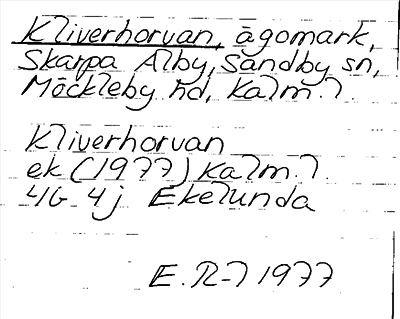 Kliverhorvan, ägomark,
Skarpa Alby, Sandby sn,
Möckleby hd, Kalm. l
Kliverhorvan
ek (1977) Kalm. l.
4G 4j Ekelunda
E. R-l 1977